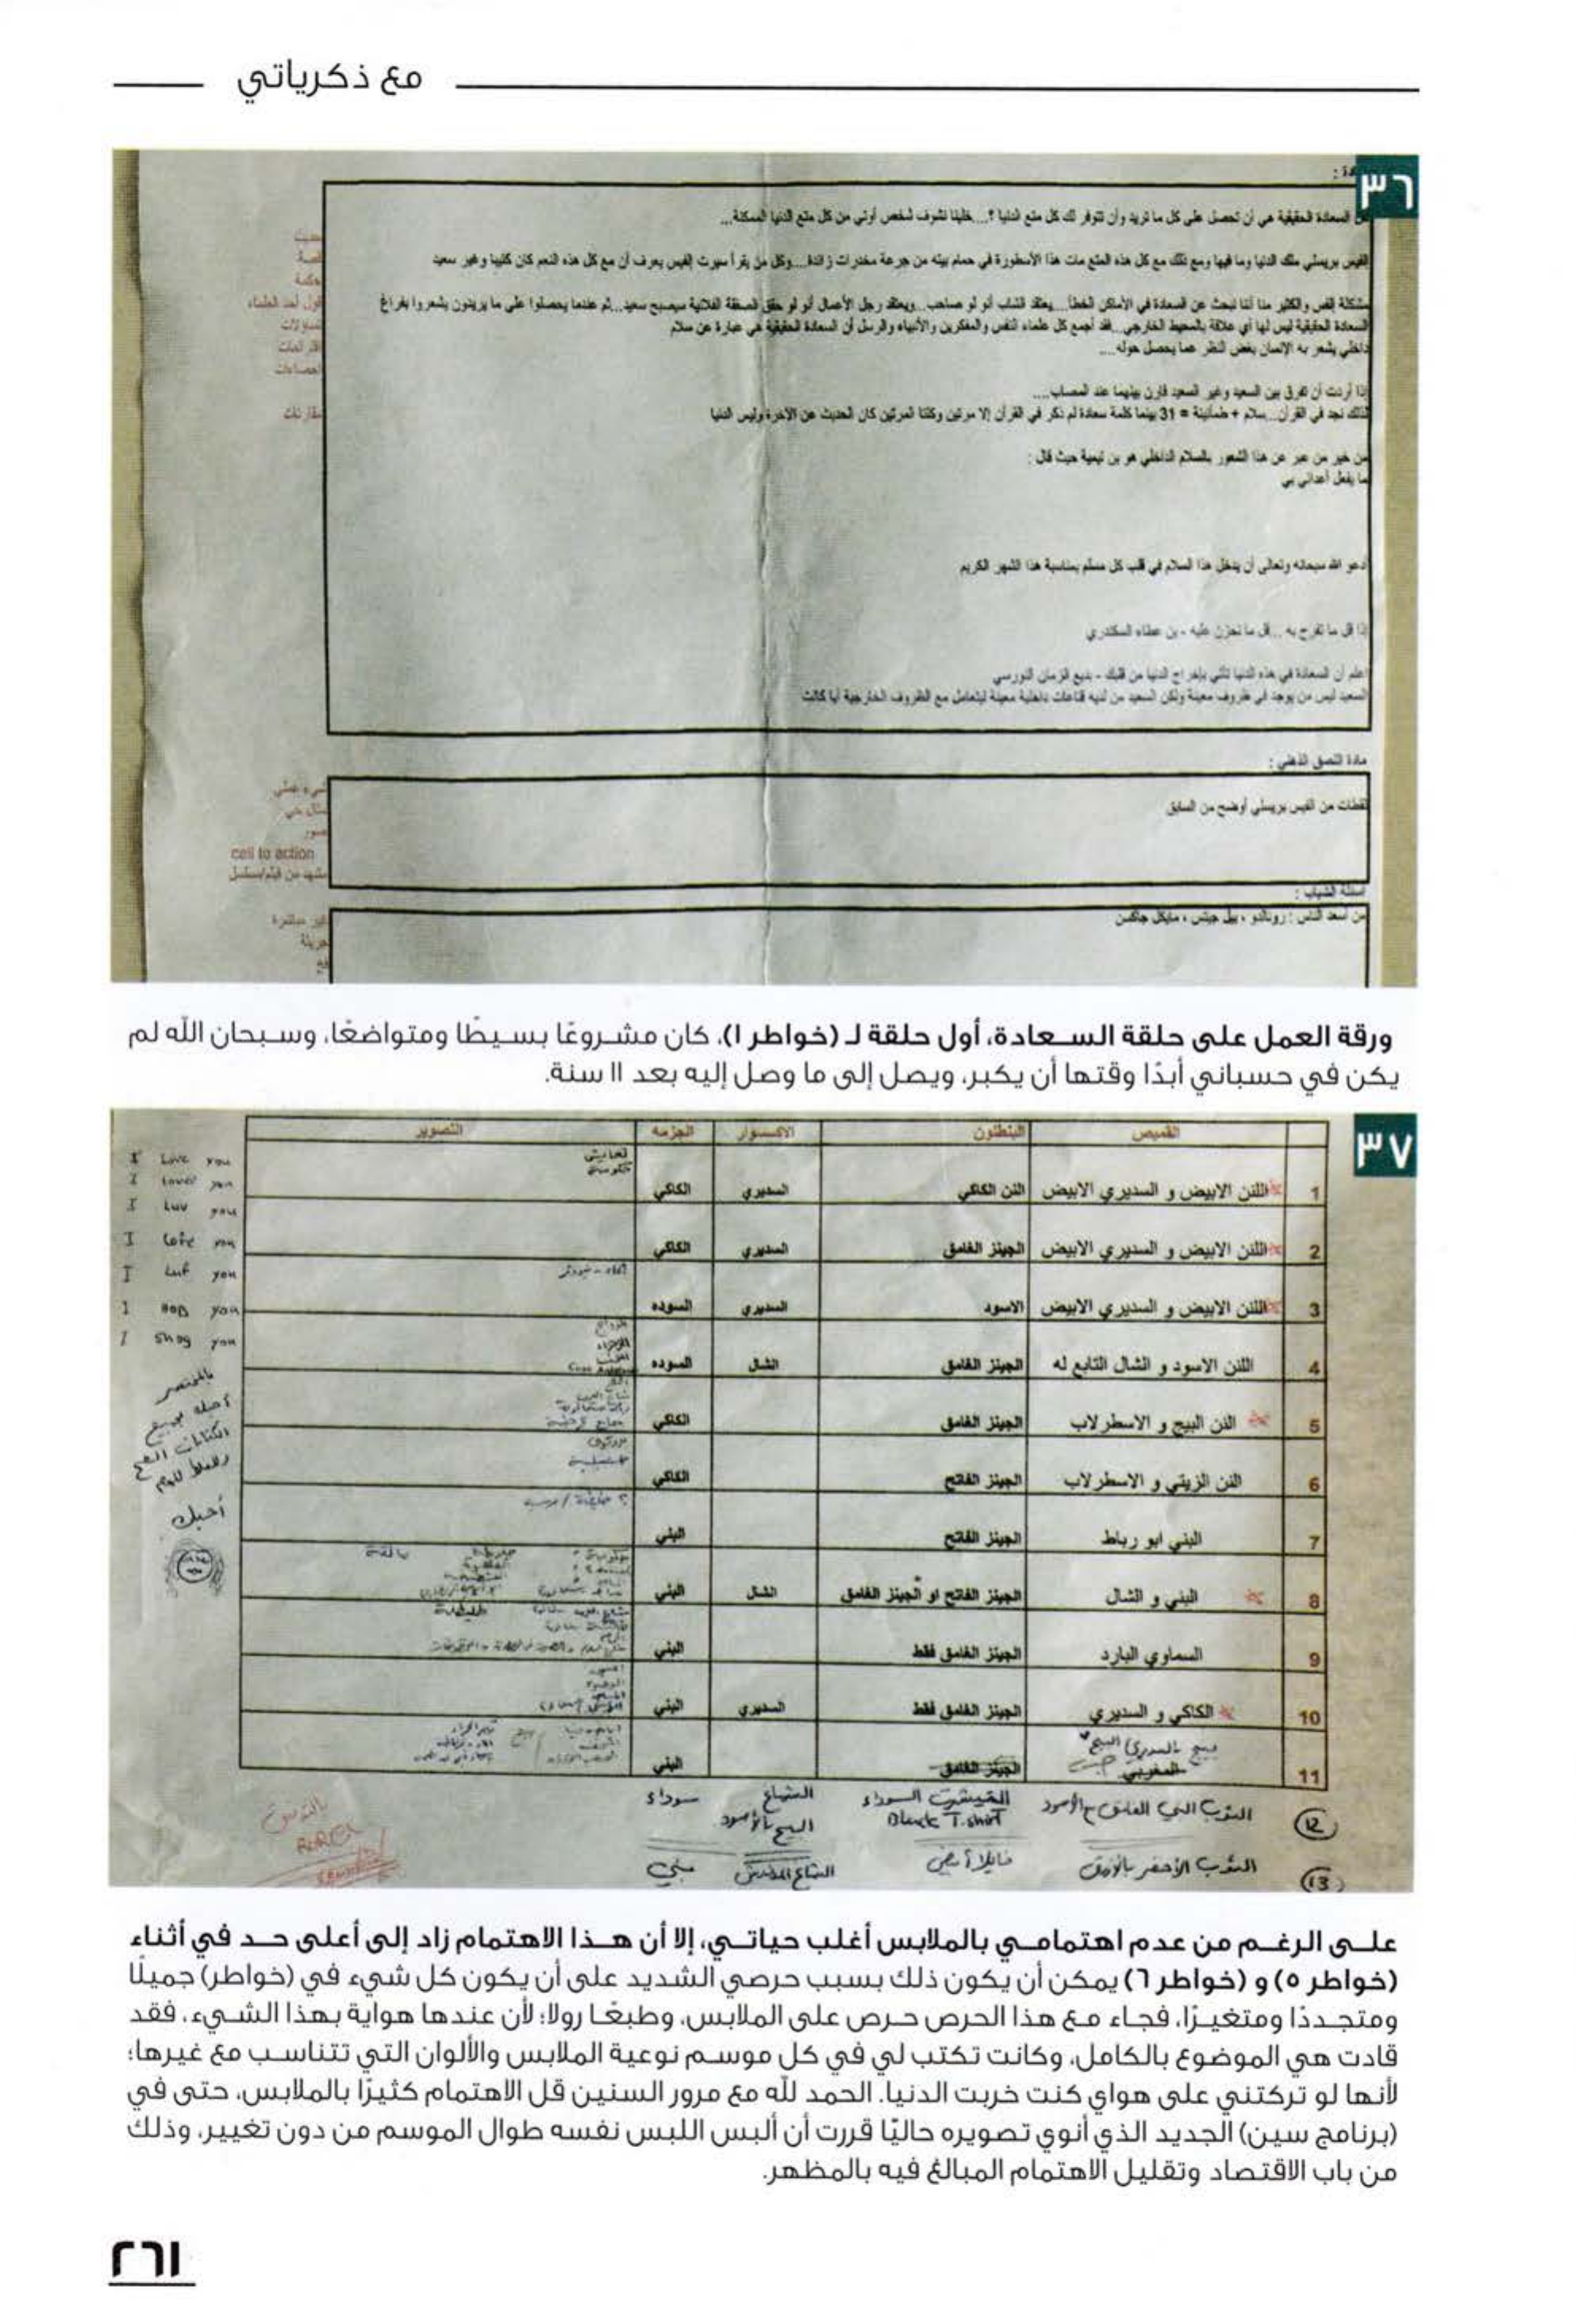 مع ذكرياتي
٣٦
السعادة الحقيقية هي أن تحصل على كل ما تريد وأن تتوفر لك كل متع الدنيا ؟....خلينا نشوف شخص أوتي من كل متع الدنيا الممكنة...
الفيس بريسلي ملك الدنيا وما فيها ومع ذلك مع كل هذه المتع مات هذا الأسطورة في حمام بيته من جرعة مخدرات زائدة....وكل من يقرأ سيرت الفيس يعرف أن مع كل هذه النعم كان كئيبا وغير سعيد
مشكلة الفس والكثير منا أننا نبحث عن السعادة في الأماكن الخطأ....يعتقد الشاب أنو لو صاحب...ويعتقد رجل الأعمال أنو لو حقق الصفقة الفلانية سيصبح سعيد...ثم عندما يحصلوا على ما يريدون يشعروا بفراغ
السعادة الحقيقية ليس لها أي علاقة بالمحيط الخارجي...فقد أجمع كل علماء النفس والمفكرين والأنبياء والرسل أن السعادة الحقيقية هي عبارة عن سلام
داخلي يشعر به الإنسان بغض النظر عما يحصل حوله....
إذا أردت أن تفرق بين السعيد وغير السعيد قارن بينهما عند المصاب....
لذلك نجد في القرآن...سلام + طمأنينة = 31 بينما كلمة سعادة لم تذكر في القرآن إلا مرتين وكلتا المرتين كان الحديث عن الآخرة وليس الدنيا
من خير من عبر عن هذا الشعور بالسلام الداخلي هو بن تيمية حيث قال :
ما يفعل أعدائي بي
أدعو الله سبحانه وتعالى أن يدخل هذا السلام في قلب كل مسلم بمناسبة هذا الشهر الكريم
إذا قل ما تفرح به ...قل ما تحزن عليه - بن عطاء السكندري
اعلم أن السعادة في هذه الدنيا تأتي بإخراج الدنيا من قلبك - بديع الزمان النورسي
السعيد ليس من يوجد في ظروف معينة ولكن السعيد من لديه قناعات داخلية معينة ليتعامل مع الظروف الخارجية أيا كانت
قصة
حكمة
قول أحد العلماء
تساؤلات
اقتراحات
احصاءات
مقارنات
مادة النسق الذهني :
لقطات من الفيس بريسلي أوضح من السابق
مثال حي
صور
call to action
مشهد من فيلم/مسلسل
اسئلة الشباب :
من أسعد الناس : رونالدو ، بيل جيتس ، مايكل جاكسن
غير مباشرة
جريئة
ورقة العمل على حلقة السعادة، أول حلقة لـ (خواطر ١)، كان مشروعًا بسيطًا ومتواضعًا، وسبحان الله لم
يكن في حسباني أبدًا وقتها أن يكبر، ويصل إلى ما وصل إليه بعد ١١ سنة.
٣٧
القميص البنطلون الاكسسوار الجزمه التصوير
1 اللنن الابيض و السديري الابيض النن الكاكي السديري الكاكي
2 اللنن الابيض و السديري الابيض الجينز الغامق السديري الكاكي
3 اللنن الابيض و السديري الابيض الاسود السديري السوده
4 اللنن الاسود و الشال التابع له الجينز الغامق الشال السوده
5 النن البيج و الاسطرلاب الجينز الغامق الكاكي
6 النن الزيتي و الاسطرلاب الجينز الفاتح الكاكي
7 البني ابو رباط الجينز الفاتح البني
8 البني و الشال الجينز الفاتح او الجينز الغامق الشال البني
9 السماوي البارد الجينز الغامق فقط البني
10 الكاكي و السديري الجينز الغامق فقط السديري البني
11 بيج السديري البيج المغربي الجينز الغامق البني
12 الثوب البني الغامق مع الأسود التيشرت السوداء Black T.shirt الشماغ البيج بالأسود سوداء
13 الثوب الأصفر بالأزرق فانيلا أبيض الشماغ بني
I Love you
I Loved you
I Luv you
I Lofe you
I Luf you
I Hob you
I Shog you
بالمختصر
أحبك بجميع
الكتابات الصح
والغلط للوم
أحبك
على الرغم من عدم اهتمامي بالملابس أغلب حياتي، إلا أن هذا الاهتمام زاد إلى أعلى حد في أثناء
(خواطر ٥) و (خواطر ٦) يمكن أن يكون ذلك بسبب حرصي الشديد على أن يكون كل شيء في (خواطر) جميلًا
ومتجددًا ومتغيرًا، فجاء مع هذا الحرص حرص على الملابس، وطبعًا رولا؛ لأن عندها هواية بهذا الشيء، فقد
قادت هي الموضوع بالكامل، وكانت تكتب لي في كل موسم نوعية الملابس والألوان التي تتناسب مع غيرها؛
لأنها لو تركتني على هواي كنت خربت الدنيا. الحمد لله مع مرور السنين قل الاهتمام كثيرًا بالملابس، حتى في
(برنامج سين) الجديد الذي أنوي تصويره حاليًا قررت أن ألبس اللبس نفسه طوال الموسم من دون تغيير، وذلك
من باب الاقتصاد وتقليل الاهتمام المبالغ فيه بالمظهر.
٢٦١